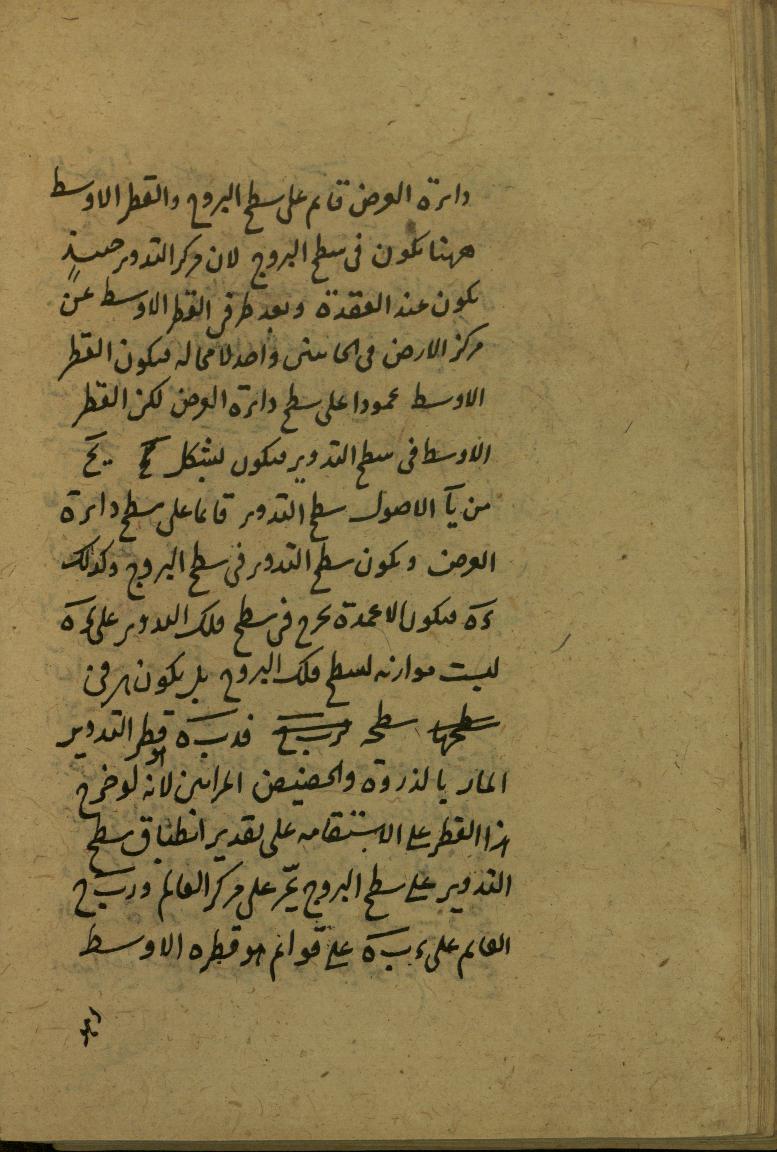 دائرة العرض قائم على سطح البروج والقطر الاوسط
ههنا يكون فى سطح البروج لان مركز التدوير حينئذٍ
يكون عند العقدة وبعد طرفى القطر الاوسط عن
مركز الارض فى الجانبين واحد لا محالة فيكون القطر
الاوسط عمودا على سطح دائرة العرض لكن القطر
الاوسط فى سطح التدوير فيكون لشكل يح
من يآ الاصول سطح التدوير قائما على سطح دائرة
العرض ويكون سطح التدوير فى سطح البروج وكذلك
ءه فيكون الاعمدة تخرج فى سطح فلك التدوير على ءه
ليست موازنه لسطح فلك البروج بل يكون هى فى
سطحها سطحه قطر التدوير
المار بالذروة والحضيض المرئيين لانه لو خرج
هذا القطر على الاستقامه على تقدير انطباق سطح
التدوير على سطح البروج يمّر على مركز العالم
العالم على على قوائم هو قطره الاوسط